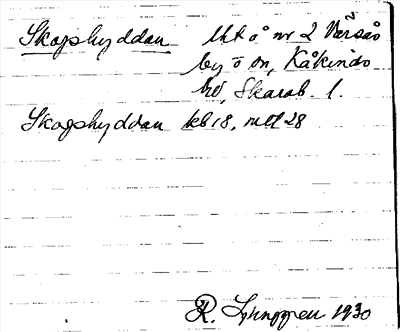 Skogshyddan Utt å nr 2 Värsås
by o sn, Kåkinds
hd, Skarab. l.
Skogshyddan kb 18, mtl 28
R. Ljunggren 1930